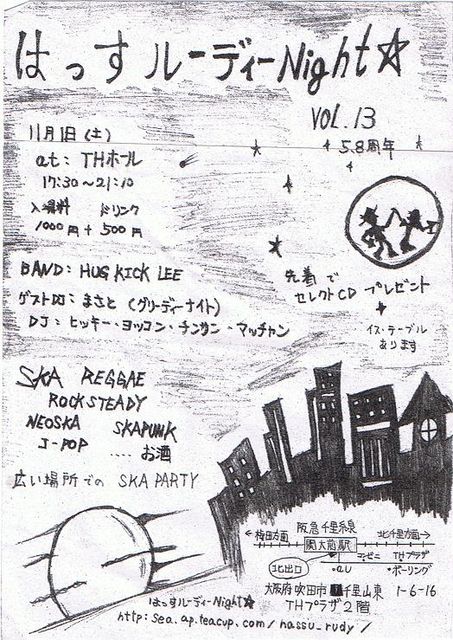 はっす ルーディーNight☆
VOL.13
11月1日(土)
5.8周年
at: THホール
17:30〜21:10
入場料 ドリンク
1000円 + 500円
BAND: HUG KICK LEE
先着で
セレクトCD プレゼント
ゲストDJ: まさと (グリーディーナイト)
DJ: ヒッキー・ヨッコン・チンサン・マッチャン
イス・テーブル
あります
SKA REGGAE
ROCKSTEADY
NEOSKA SKAPUNK
J-POP .... お酒
広い場所での SKA PARTY
阪急千里線
←梅田方面 北千里方面→
関大前駅
コンビニ THプラザ
北出口 au ボーリング
大阪府 吹田市 千里山東 1-6-16
THプラザ2階
はっすルーディーNight☆
http:sea.ap.teacup.com/hassu_rudy/